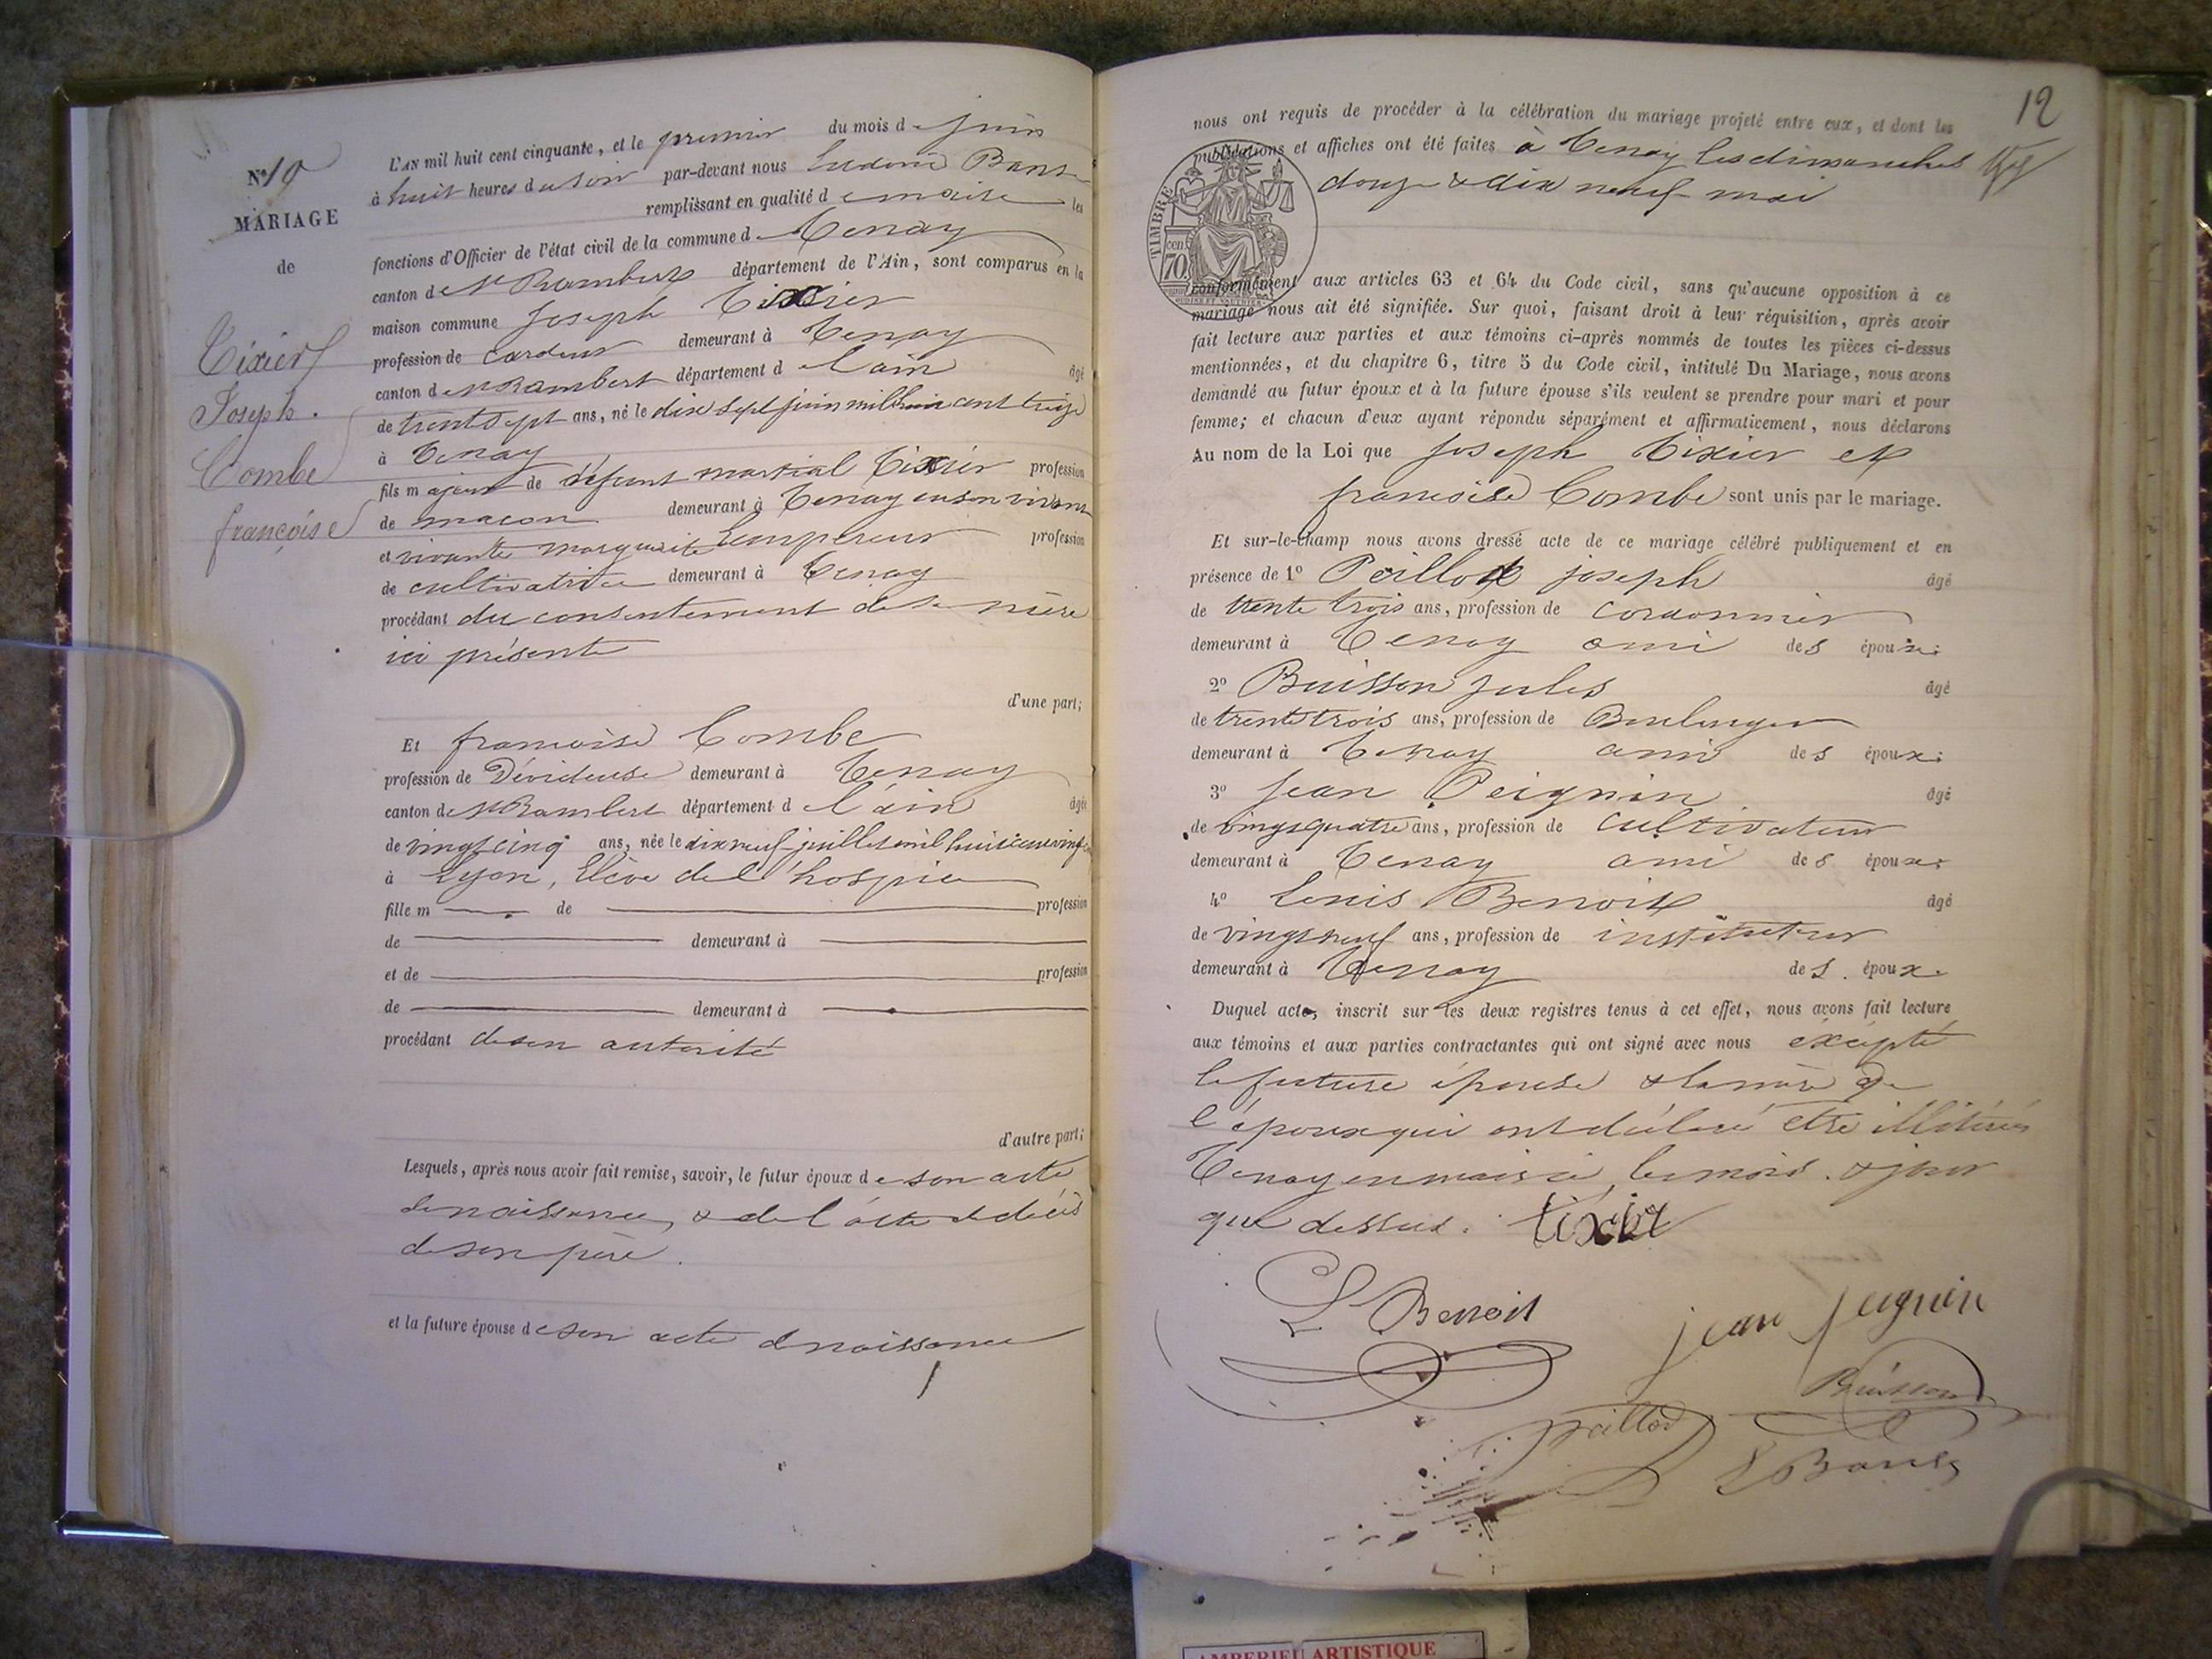 N° 10
MARIAGE
de
Tixier
Joseph.
Combe
françoise
L'AN mil huit cent cinquante, et le premier du mois de juin
à huit heures du soir par-devant nous Ludovic
remplissant en qualité de maire les
fonctions d'Officier de l'état civil de la commune d Tenay
canton de St Rambert département de l'Ain, sont comparus en la
maison commune Joseph Tixier
profession de cardeur demeurant à Tenay
canton de St Rambert département d l'ain âgé
de trente sept ans, né le dix sept juin mil huit cent treize
à Tenay
fils majeur de défunt martial Tixier profession
de macon demeurant à Tenay en son vivant
et vivante marguerite Lempereur profession
de cultivatrice demeurant à Tenay
procédant du consentement de sa mère
ici présente
d'une part;
Et francoise Combe
profession de Dévideuse demeurant à Tenay
canton de St Rambert département de l'ain âgée
de vingt cinq ans, née le dix neuf juillet mil huit cent vingt
à Lyon, Elève de l'hospice
fille m de profession
de demeurant à
et de profession
de demeurant à
procédant de son autorité
d'autre part;
Lesquels, après nous avoir fait remise, savoir, le futur époux de son acte
de naissance, & de l'acte de décès
de son père.
et la future épouse de son acte de naissance
12
nous ont requis de procéder à la célébration du mariage projeté entre eux, et dont les
publications et affiches ont été faites à Tenay les dimanches
douze & dix neuf mai
TIMBRE
70 cen.
conformément aux articles 63 et 64 du Code civil, sans qu'aucune opposition à ce
mariage nous ait été signifiée. Sur quoi, faisant droit à leur réquisition, après avoir
fait lecture aux parties et aux témoins ci-après nommés de toutes les pièces ci-dessus
mentionnées, et du chapitre 6, titre 5 du Code civil, intitulé Du Mariage, nous avons
demandé au futur époux et à la future épouse s'ils veulent se prendre pour mari et pour
femme; et chacun d'eux ayant répondu séparément et affirmativement, nous déclarons
Au nom de la Loi que Joseph Tixier et
francoise Combe sont unis par le mariage.
Et sur-le-champ nous avons dressé acte de ce mariage célébré publiquement et en
présence de 1° Peillod joseph âgé
de trente trois ans, profession de cordonnier
demeurant à Tenay ami des époux;
2° Buisson Jules âgé
de trente trois ans, profession de Boulanger
demeurant à Tenay ami des époux;
3° Jean Peignin âgé
de vingt quatre ans, profession de cultivateur
demeurant à Tenay ami des époux;
4° Louis Benoit âgé
de vingt neuf ans, profession de instituteur
demeurant à Tenay des époux.
Duquel acte, inscrit sur les deux registres tenus à cet effet, nous avons fait lecture
aux témoins et aux parties contractantes qui ont signé avec nous éxcepté
la future épouse & la mère de
l'époux qui ont déclaré être illitérés
Tenay en mairie, les mois. & jour
que dessus. tixier
L Benoit
jean peignin
Buisson
peillod
AMBERIEU ARTISTIQUE